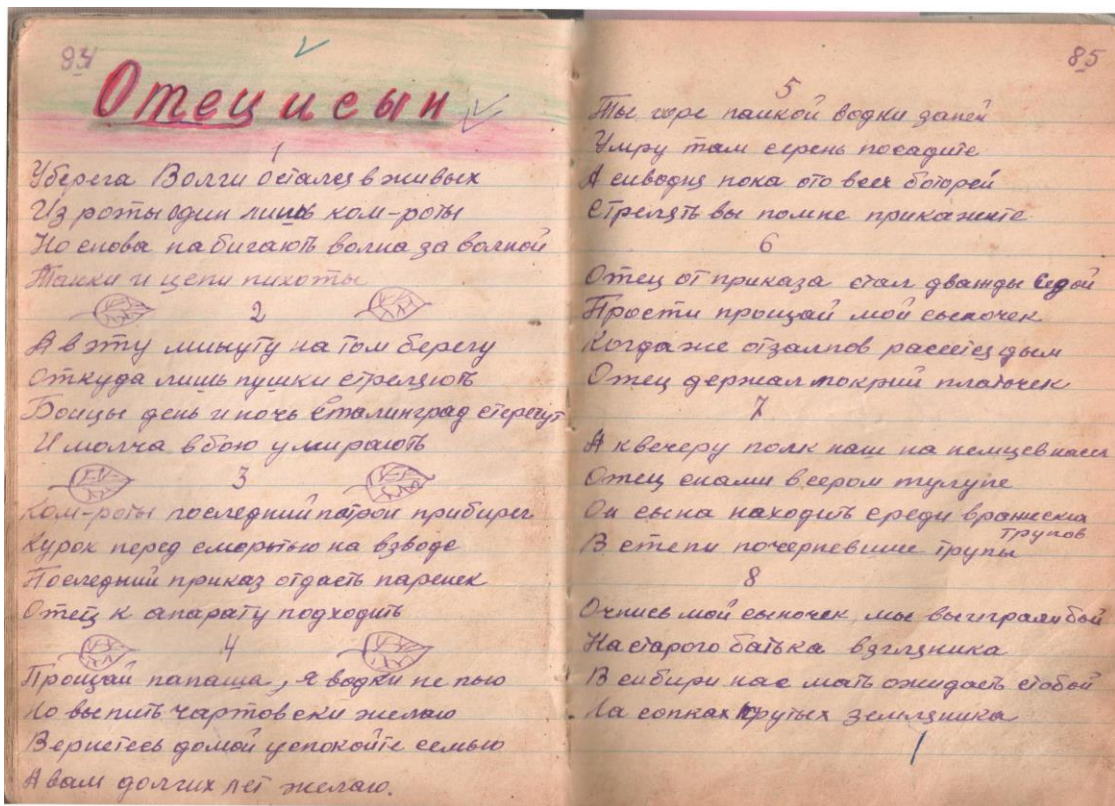 84
Отец и сын
1
У берега Волги остался в живых
Из роты один лишь ком-роты
Но слова набигають волна за волной
Танки и цепи пихоты
2
А в эту минуту на том берегу
Откуда лишь пушки стреляють
Боицы день и ночь Сталинград стерегут
И молча в бою умирають
3
Ком-роты последний патрон прибирег
Курок перед смортью на взводе
Последний приказ отдасть паренек
Отец к апарату подходить
4
Прощай папаша, я водки не пью
Но выпить чартовски желаю
Вернетесь домой успокойте семью
А вам долгих лет желаю.
85
5
Ты горе паикой водки запей
Умру там серень посадите
А сиводня пока ото всех боторей
Стрелять вы помне прикажите
6
Отец от приказа стал дважды седой
Прости прощай мой сыночек
Когда же от залпов рассетея дым
Отец держал мокрий платочек
7
А к вечеру полк наш на немцев насел
Отец снами в сером тулупе
Он сына находить среди вражеских
трупов
В степи почерневшие трупы
8
Очнись мой сыночек, мы выиграли бой
На старого батька взгляника
В сибири нас мать ожидаеть стобой
На сопках крутых земляника